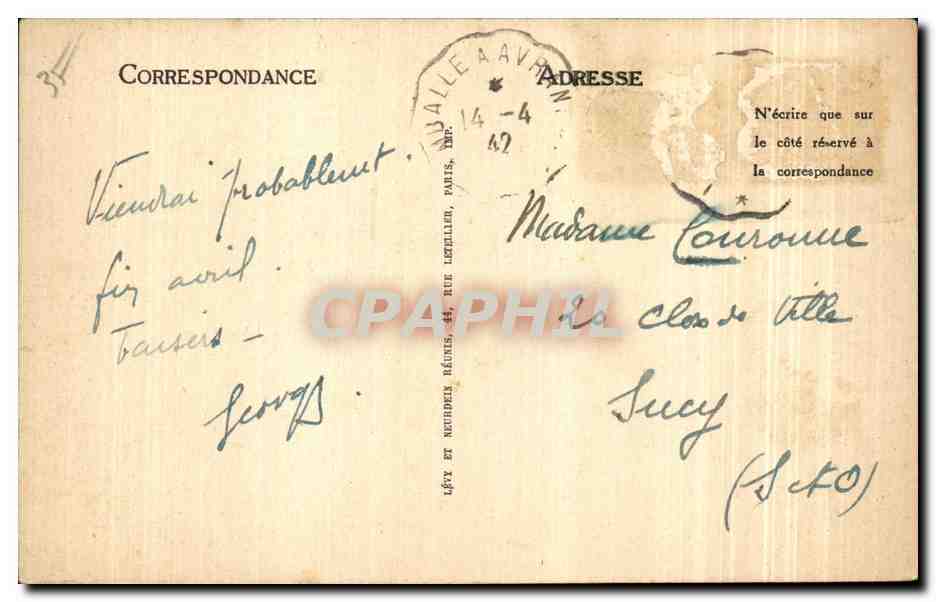 CORRESPONDANCE
ADRESSE
N'écrire que sur
le côté réservé à
la correspondance
14 -4
42
Viendrai probablement
fin avril.
Baisers -
Georges
LÉVY ET NEURDEIN RÉUNIS, 44, RUE LETELLIER, PARIS, IMP.
Madame Couronne
20 Clos de Ville
Sucy
(S&O)
CPAPHIL